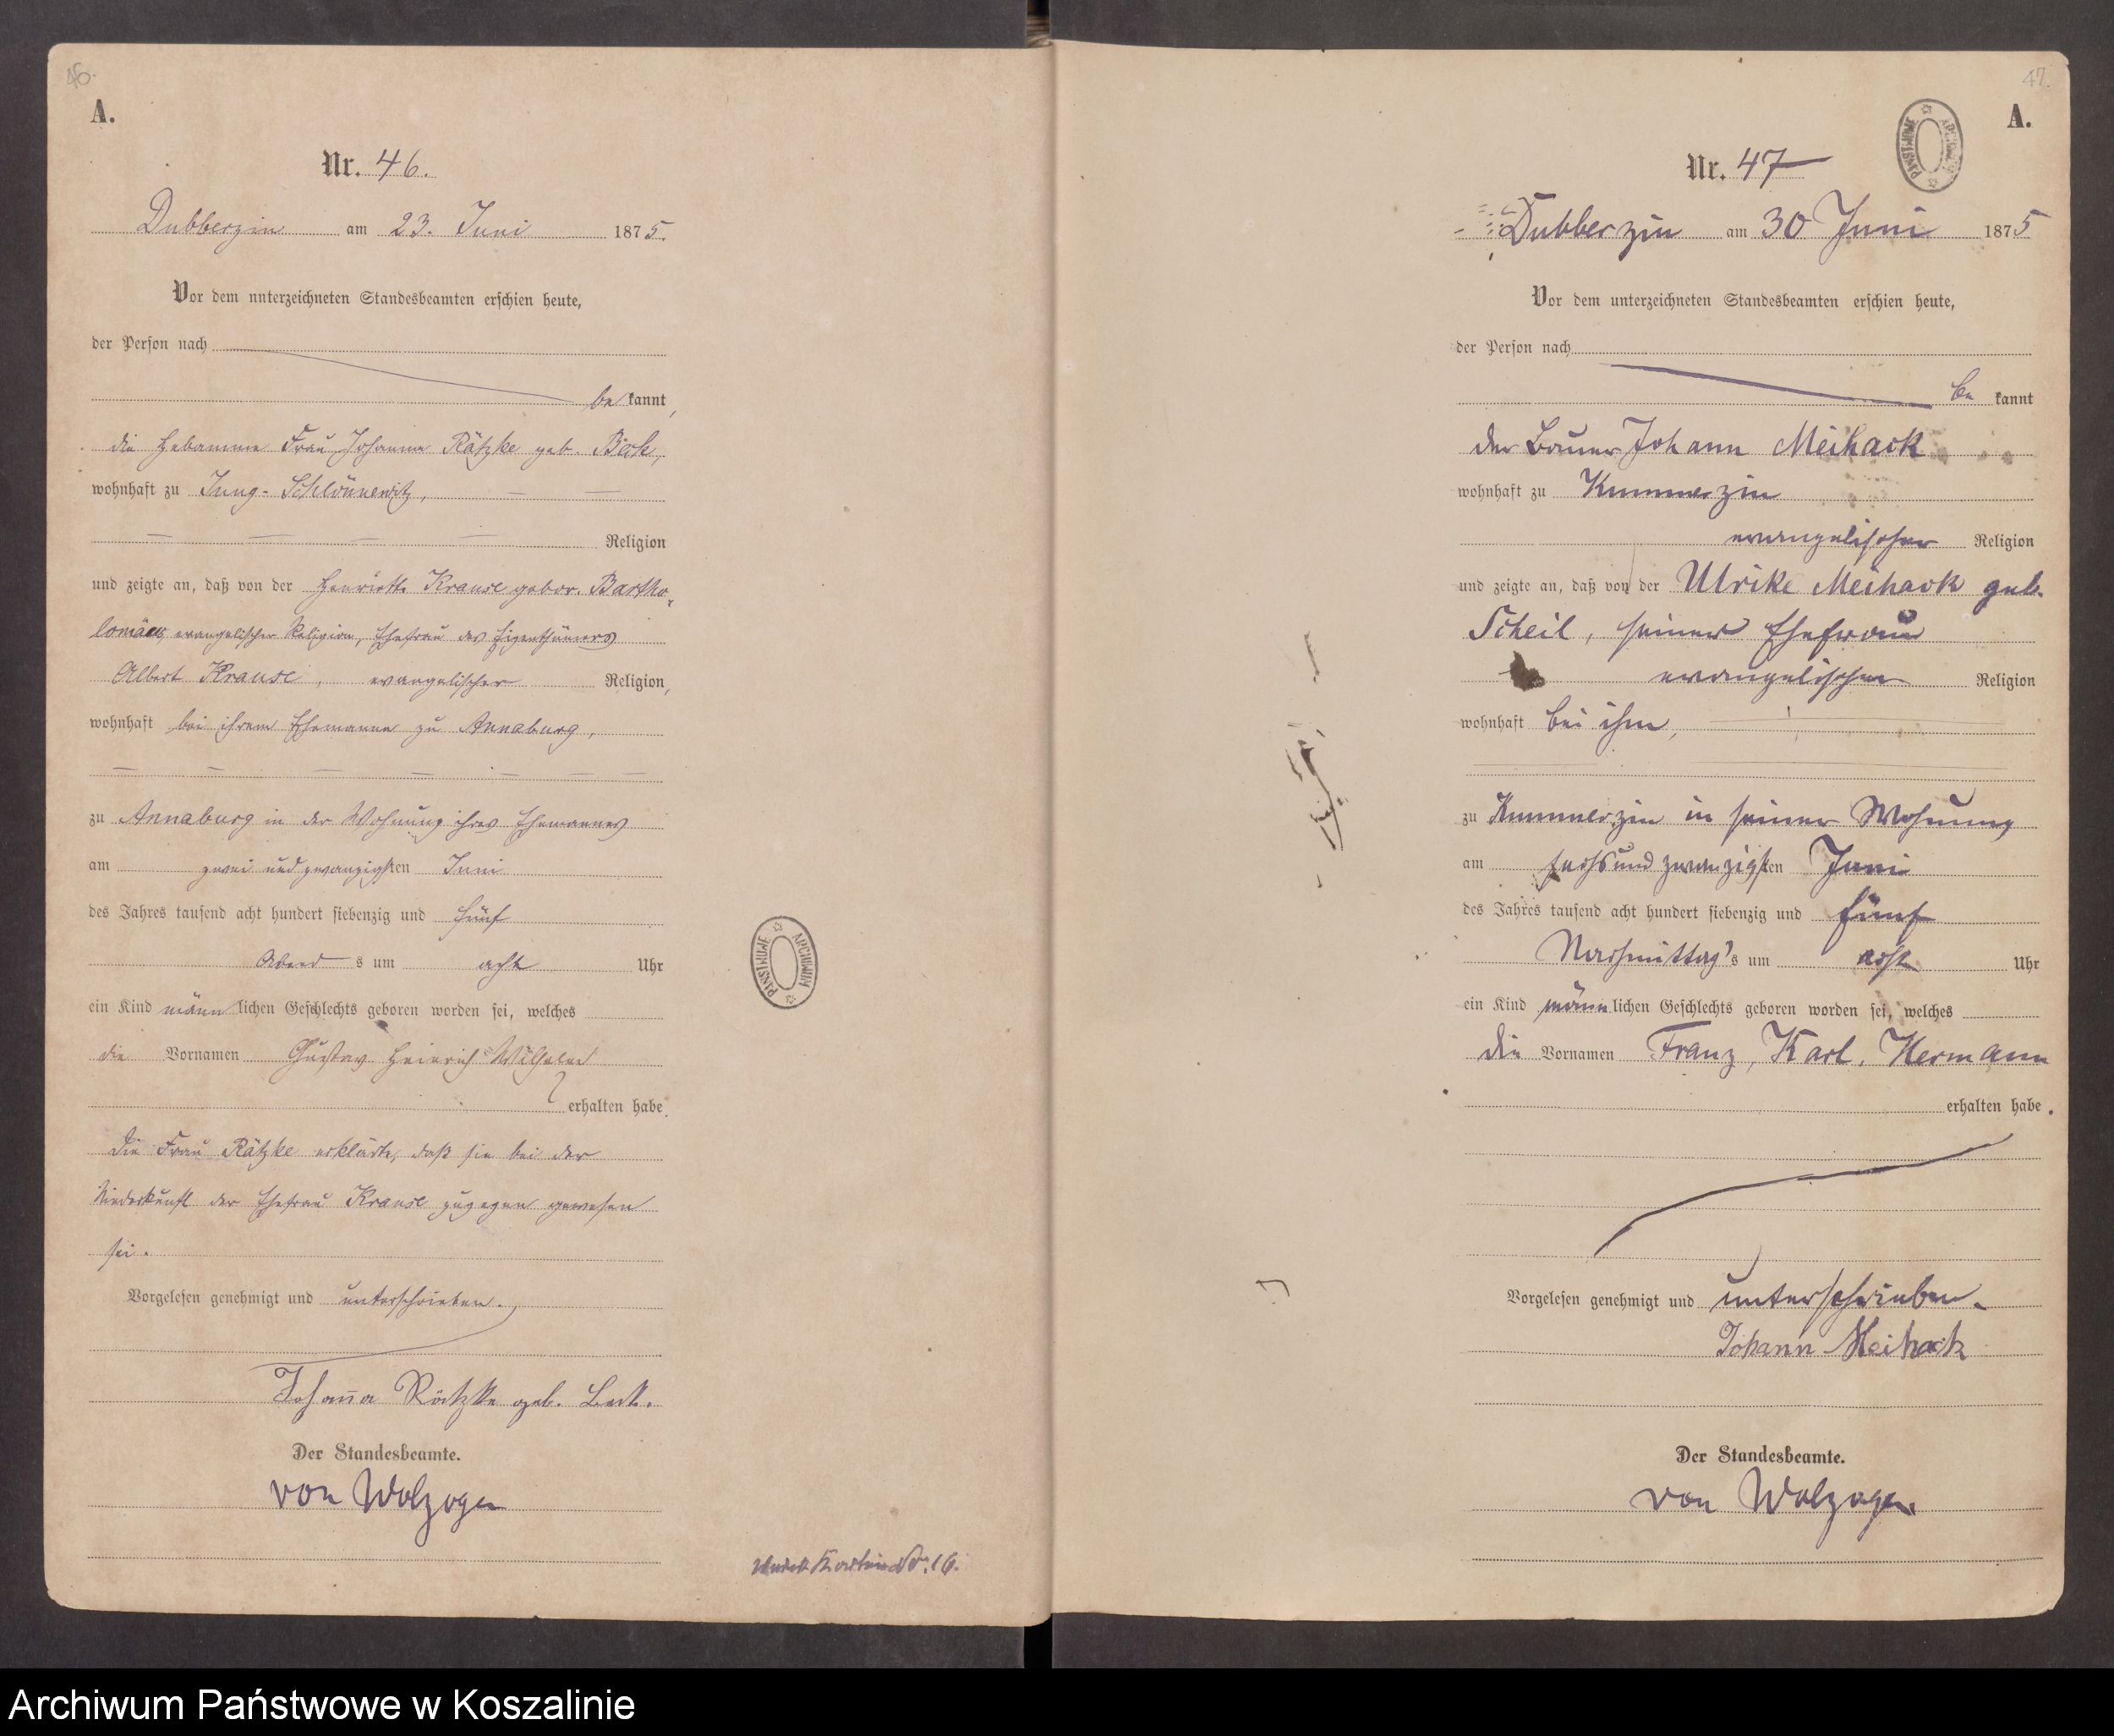 46.
A.
Nr. 46.
Dubberzin am 23. Juni 1875.
Vor dem unterzeichneten Standesbeamten erschien heute,
der Person nach
bekannt,
die Hebamme Frau Johanna Rätzke geb. Beck,
wohnhaft zu Jung-Schlönnewitz,
Religion
und zeigte an, daß von der Henriette Krause gebor. Bartho-
lomäus, evangelischer Religion, Ehefrau des Eigenthümers
Albert Krause, evangelischer Religion,
wohnhaft bei ihrem Ehemanne zu Annaburg,
zu Annaburg in der Wohnung ihres Ehemannes
am zwei und zwanzigsten Juni
des Jahres tausend acht hundert siebenzig und fünf
Abends um acht Uhr
ein Kind männlichen Geschlechts geboren worden sei, welches
die Vornamen Gustav Heinrich Wilhelm
erhalten habe.
Die Frau Rätzke erklärte, daß sie bei der
Niederkunft der Ehefrau Krause zugegen gewesen
sei.
Vorgelesen genehmigt und unterschrieben.
Johanna Rätzke geb. Beck.
Der Standesbeamte.
von Wolzogen
ARCHIWUM PAŃSTWOWE
No. 16.
47.
A.
ARCHIWUM PAŃSTWOWE
Nr. 47
Dubberzin am 30 Juni 1875
Vor dem unterzeichneten Standesbeamten erschien heute,
der Person nach
be kannt
der Bauer Johann Meihack
wohnhaft zu Kummerzin
evangelischer Religion
und zeigte an, daß von der Ulrike Meihack geb.
Scheil, seiner Ehefrau
evangelischer Religion
wohnhaft bei ihm,
zu Kummerzin in seiner Wohnung
am sechsundzwanzigsten Juni
des Jahres tausend acht hundert siebenzig und fünf
Nachmittag's um acht Uhr
ein Kind männlichen Geschlechts geboren worden sei, welches
die Vornamen Franz, Karl, Hermann
erhalten habe.
Vorgelesen genehmigt und unterschrieben.
Johann Meihack
Der Standesbeamte.
von Wolzogen
Archiwum Państwowe w Koszalinie